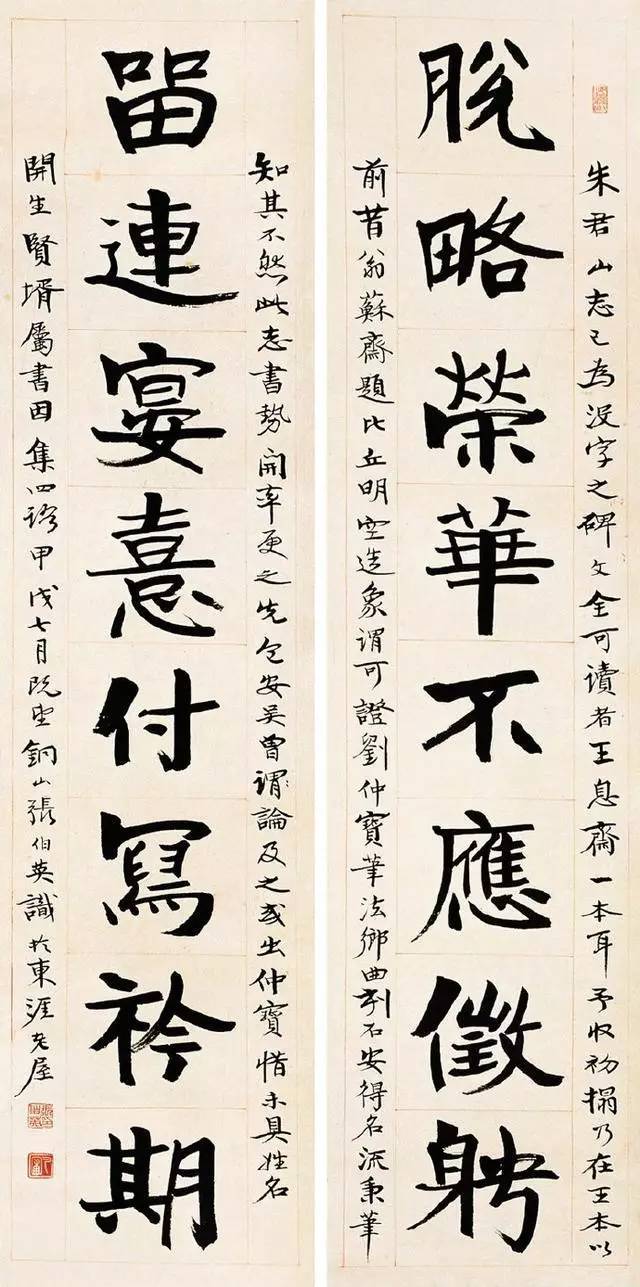 脫略榮華不應徵聘
留連宴憙付寫衿期
朱君山志已為沒字之碑文全可讀者王息齋一本耳予收初搨乃在王本以
前昔翁蘇齋題比丘明空造象謂可證劉仲寶筆法鄉曲刻石安得名流秉筆
知其不然此志書勢開率更之先包安吳曾謂論及之或出仲寶惜未具姓名
開生賢壻屬書因集四語甲戌七月既望銅山張伯英識於東涯老屋